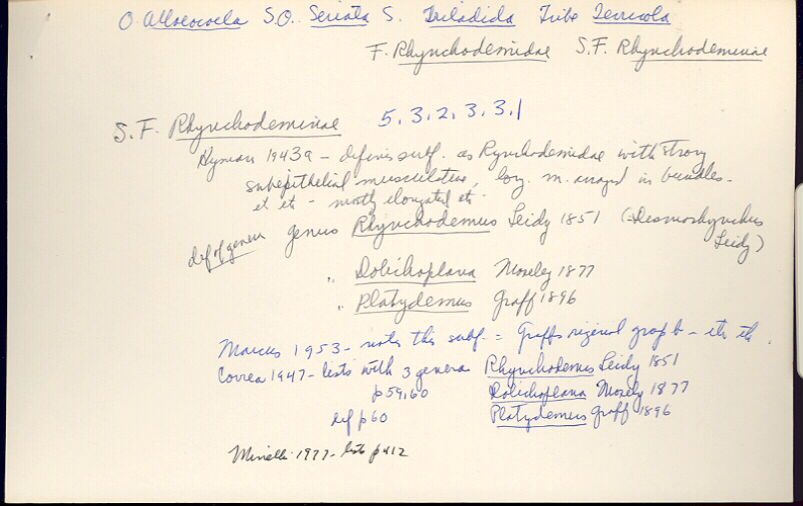 O. Alloeocoela S.O. Seriata S. Tricladida Tribe Terricola
F. Rhynchodemidae S.F. Rhynchodeminae
S.F. Rhynchodeminae 5.3.2.3.3.1
Hyman 1943a - defines subf. as Rynchodemidae with strong
subepithelial musculature, long. m. arranged in bundles -
et etc - mostly elongated etc.
def of genera genus Rhynchodemus Leidy 1851 (=Desmorhynchus
Leidy)
" Dolichoplana Moseley 1877
" Platydemus Graff 1896
Marcus 1953 - notes this subf. = Graffs original group b - etc etc.
Correa 1947 - lists with 3 genera Rhynchodemus Leidy 1851
p 59, 60 Dolichoplana Mosely 1877
def p 60 Platydemus Graff 1896
Minelli 1977 - lists p 412